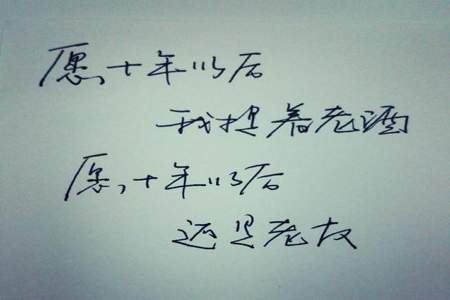 愿,十年以后
我提着老酒
愿,十年以后
还是老友